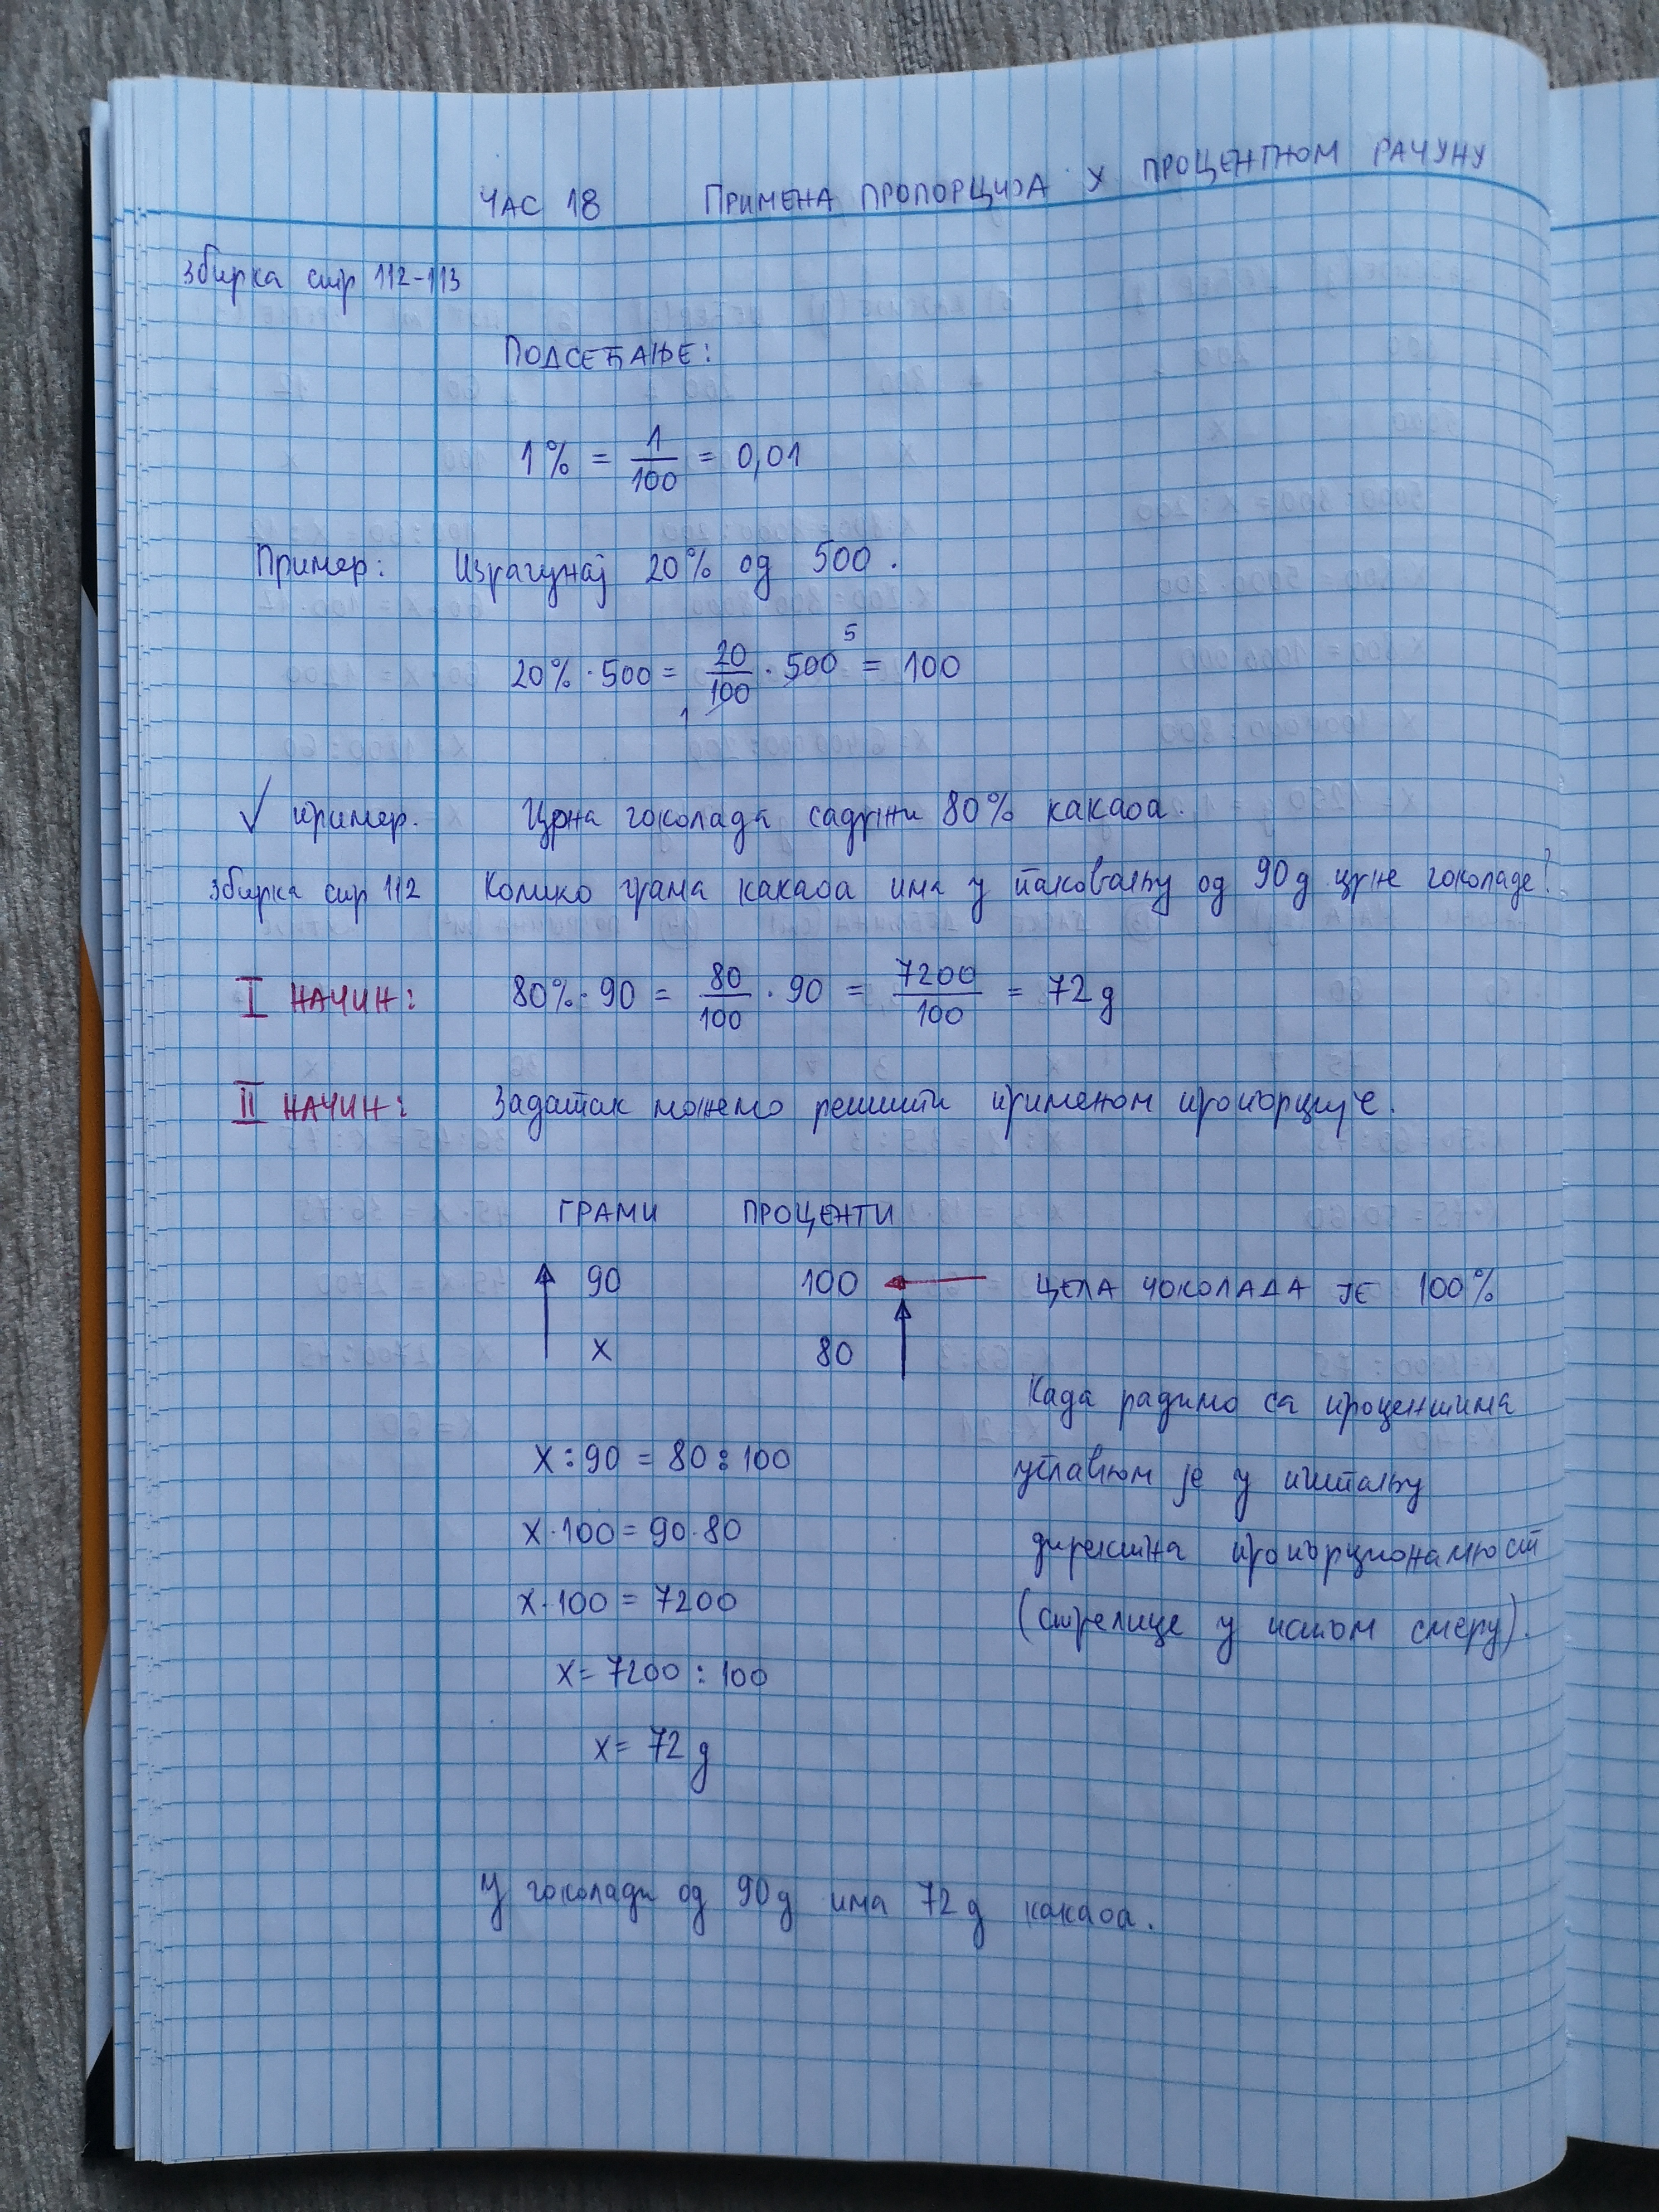 ЧАС 18 ПРИМЕНА ПРОПОРЦИЈА У ПРОЦЕНТНОМ РАЧУНУ
Збирка стр 112-113
ПОДСЕЋАЊЕ:
1% = 1/100 = 0,01
Пример: Израчунај 20% од 500.
20% · 500 = 20/100 · 500 = 100
5
1
√ пример. Црна чоколада садржи 80% какаоа.
Збирка стр 112 Колико грама какаоа има у паковању од 90g црне чоколаде?
I НАЧИН: 80% · 90 = 80/100 · 90 = 7200/100 = 72g
II НАЧИН: Задатак можемо решити применом пропорције.
ГРАМИ ПРОЦЕНТИ
90 100 ← ЦЕЛА ЧОКОЛАДА ЈЕ 100%
x 80
Када радимо са процентима
x:90 = 80:100
углавном је у питању
x·100 = 90·80
директна пропорционалност
x·100 = 7200
(стрелице у истом смеру).
x = 7200 : 100
x = 72g
У чоколади од 90g има 72g какаоа.